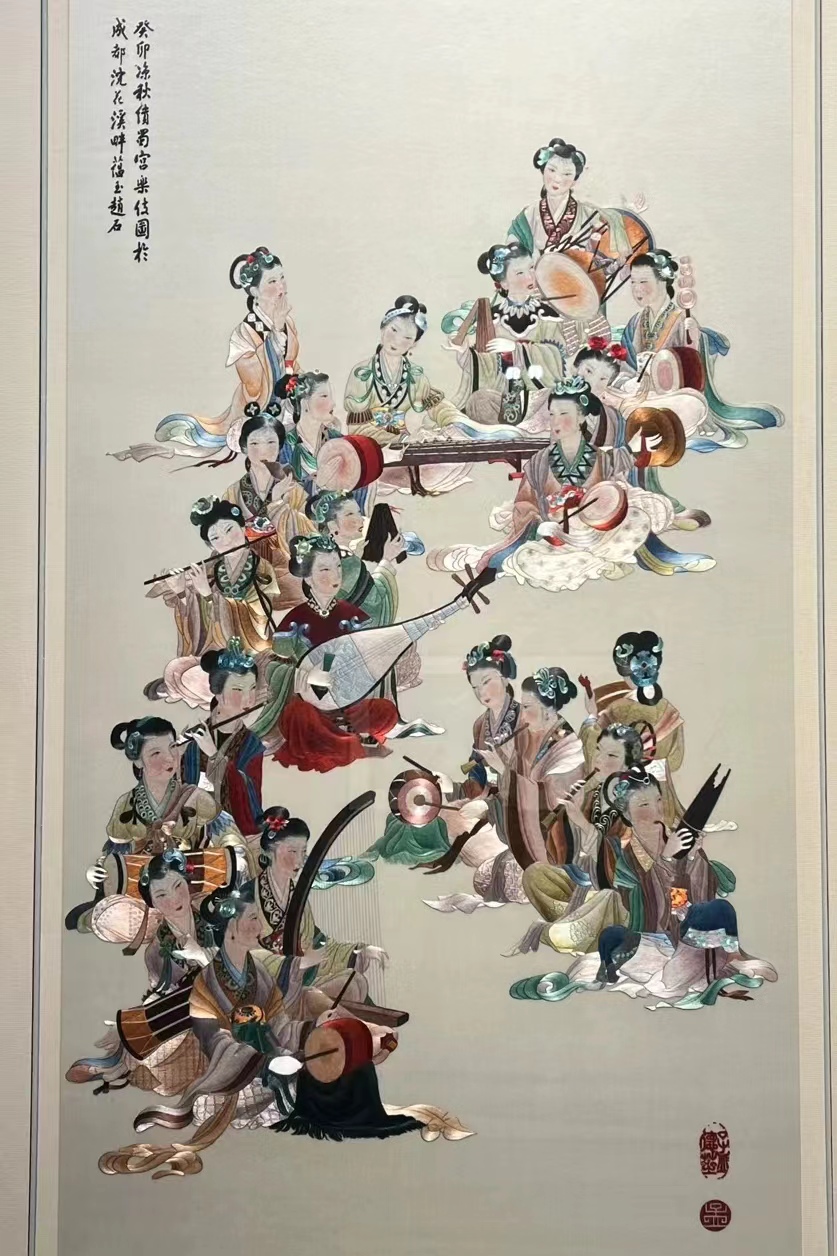 癸卯添秋倩蜀宫樂伎圖於
成都浣花溪畔蕴玉趙石